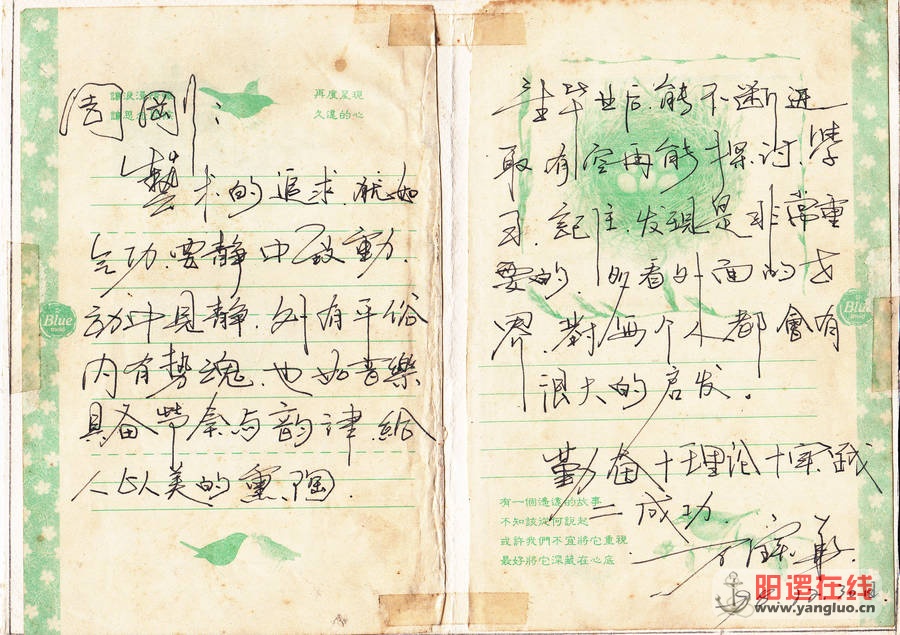 讓浪漫
再度呈現
久違的心
周刚：
藝术的追求.就如
气功.要静中致動.
动中見静.外有平俗
内有势魂.也如音樂
具备节奏与韵律.給
人以美的熏陶.
Blue
毕业后.能不断进
取.有空再能探讨.學
习.記住.发現是非常重
要的.多看外面的世
界.對两个人都會有
很大的启发。
Blue
勤奋+理论+实践
=成功.
有一個遙遠的故事
不知該從何說起
或許我們不宜將它重視
最好將它深藏在心底
阳逻在线
www.yangluo.cn